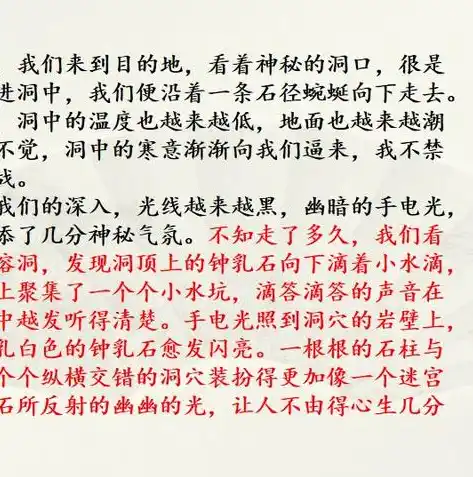 我们来到目的地，看着神秘的洞口，很是
进洞中，我们便沿着一条石径蜿蜒向下走去。
洞中的温度也越来越低，地面也越来越潮
不觉，洞中的寒意渐渐向我们逼来，我不禁
战。
我们的深入，光线越来越黑，幽暗的手电光，
添了几分神秘气氛。不知走了多久，我们看
溶洞，发现洞顶上的钟乳石向下滴着小水滴，
上聚集了一个个小水坑，滴答滴答的声音在
中越发听得清楚。手电光照到洞穴的岩壁上，
乳白色的钟乳石愈发闪亮。一根根的石柱与
个个纵横交错的洞穴装扮得更加像一个迷宫
石所反射的幽幽的光，让人不由得心生几分